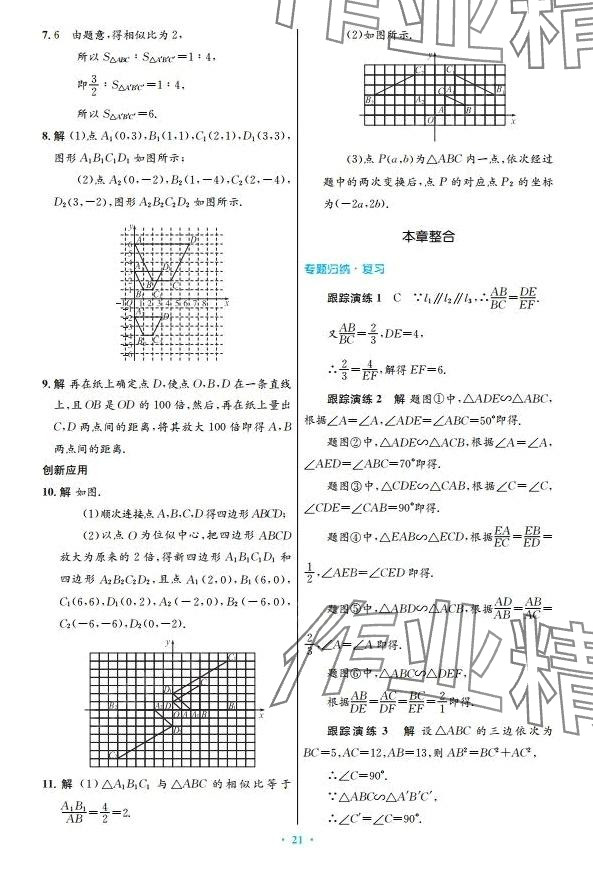 7. 6 由题意,得相似比为 2,
所以 S△ABC : S△A'B'C' = 1 : 4,
即 3/2 : S△A'B'C' = 1 : 4,
所以 S△A'B'C' = 6.
8. 解 (1)点 A₁(0,3),B₁(1,1),C₁(2,1),D₁(3,3),
图形 A₁B₁C₁D₁ 如图所示;
(2)点 A₂(0,-2),B₂(1,-4),C₂(2,-4),
D₂(3,-2),图形 A₂B₂C₂D₂ 如图所示.
9. 解 再在纸上确定点 D,使点 O,B,D 在一条直线
上,且 OB 是 OD 的 100 倍,然后,再在纸上量出
C,D 两点间的距离,将其放大 100 倍即得 A,B
两点间的距离.
创新应用
10. 解 如图.
(1)顺次连接点 A,B,C,D 得四边形 ABCD;
(2)以点 O 为位似中心,把四边形 ABCD
放大为原来的 2 倍,得新四边形 A₁B₁C₁D₁ 和
四边形 A₂B₂C₂D₂,且点 A₁(2,0),B₁(6,0),
C₁(6,6),D₁(0,2),A₂(-2,0),B₂(-6,0),
C₂(-6,-6),D₂(0,-2).
11. 解 (1)△A₁B₁C₁ 与△ABC 的相似比等于
A₁B₁/AB = 4/2 = 2.
(2)如图所示.
(3)点 P(a,b)为△ABC 内一点,依次经过
题中的两次变换后,点 P 的对应点 P₂ 的坐标
为(-2a,2b).
本章整合
专题归纳·复习
跟踪演练 1 C ∵l₁∥l₂∥l₃,∴AB/BC = DE/EF.
又 AB/BC = 2/3,DE=4,
∴2/3 = 4/EF,解得 EF=6.
跟踪演练 2 解 题图①中,△ADE∽△ABC,
根据∠A=∠A,∠ADE=∠ABC=50°即得.
题图②中,△ADE∽△ACB,根据∠A=∠A,
∠AED=∠ABC=70°即得.
题图③中,△CDE∽△CAB,根据∠C=∠C,
∠CDE=∠CAB=90°即得.
题图④中,△EAB∽△ECD,根据 EA/EC = EB/ED =
1/2,∠AEB=∠CED 即得.
题图⑤中,△ABD∽△ACB,根据 AD/AB = AB/AC =
2/3,∠A=∠A 即得.
题图⑥中,△ABC∽△DEF,
根据 AB/DE = AC/DF = BC/EF = 2/1 即得.
跟踪演练 3 解 设△ABC 的三边依次为
BC=5,AC=12,AB=13,则 AB²=BC²+AC²,
∴∠C=90°.
∵△ABC∽△A'B'C',
∴∠C'=∠C=90°.
· 21 ·
作业精
作业精